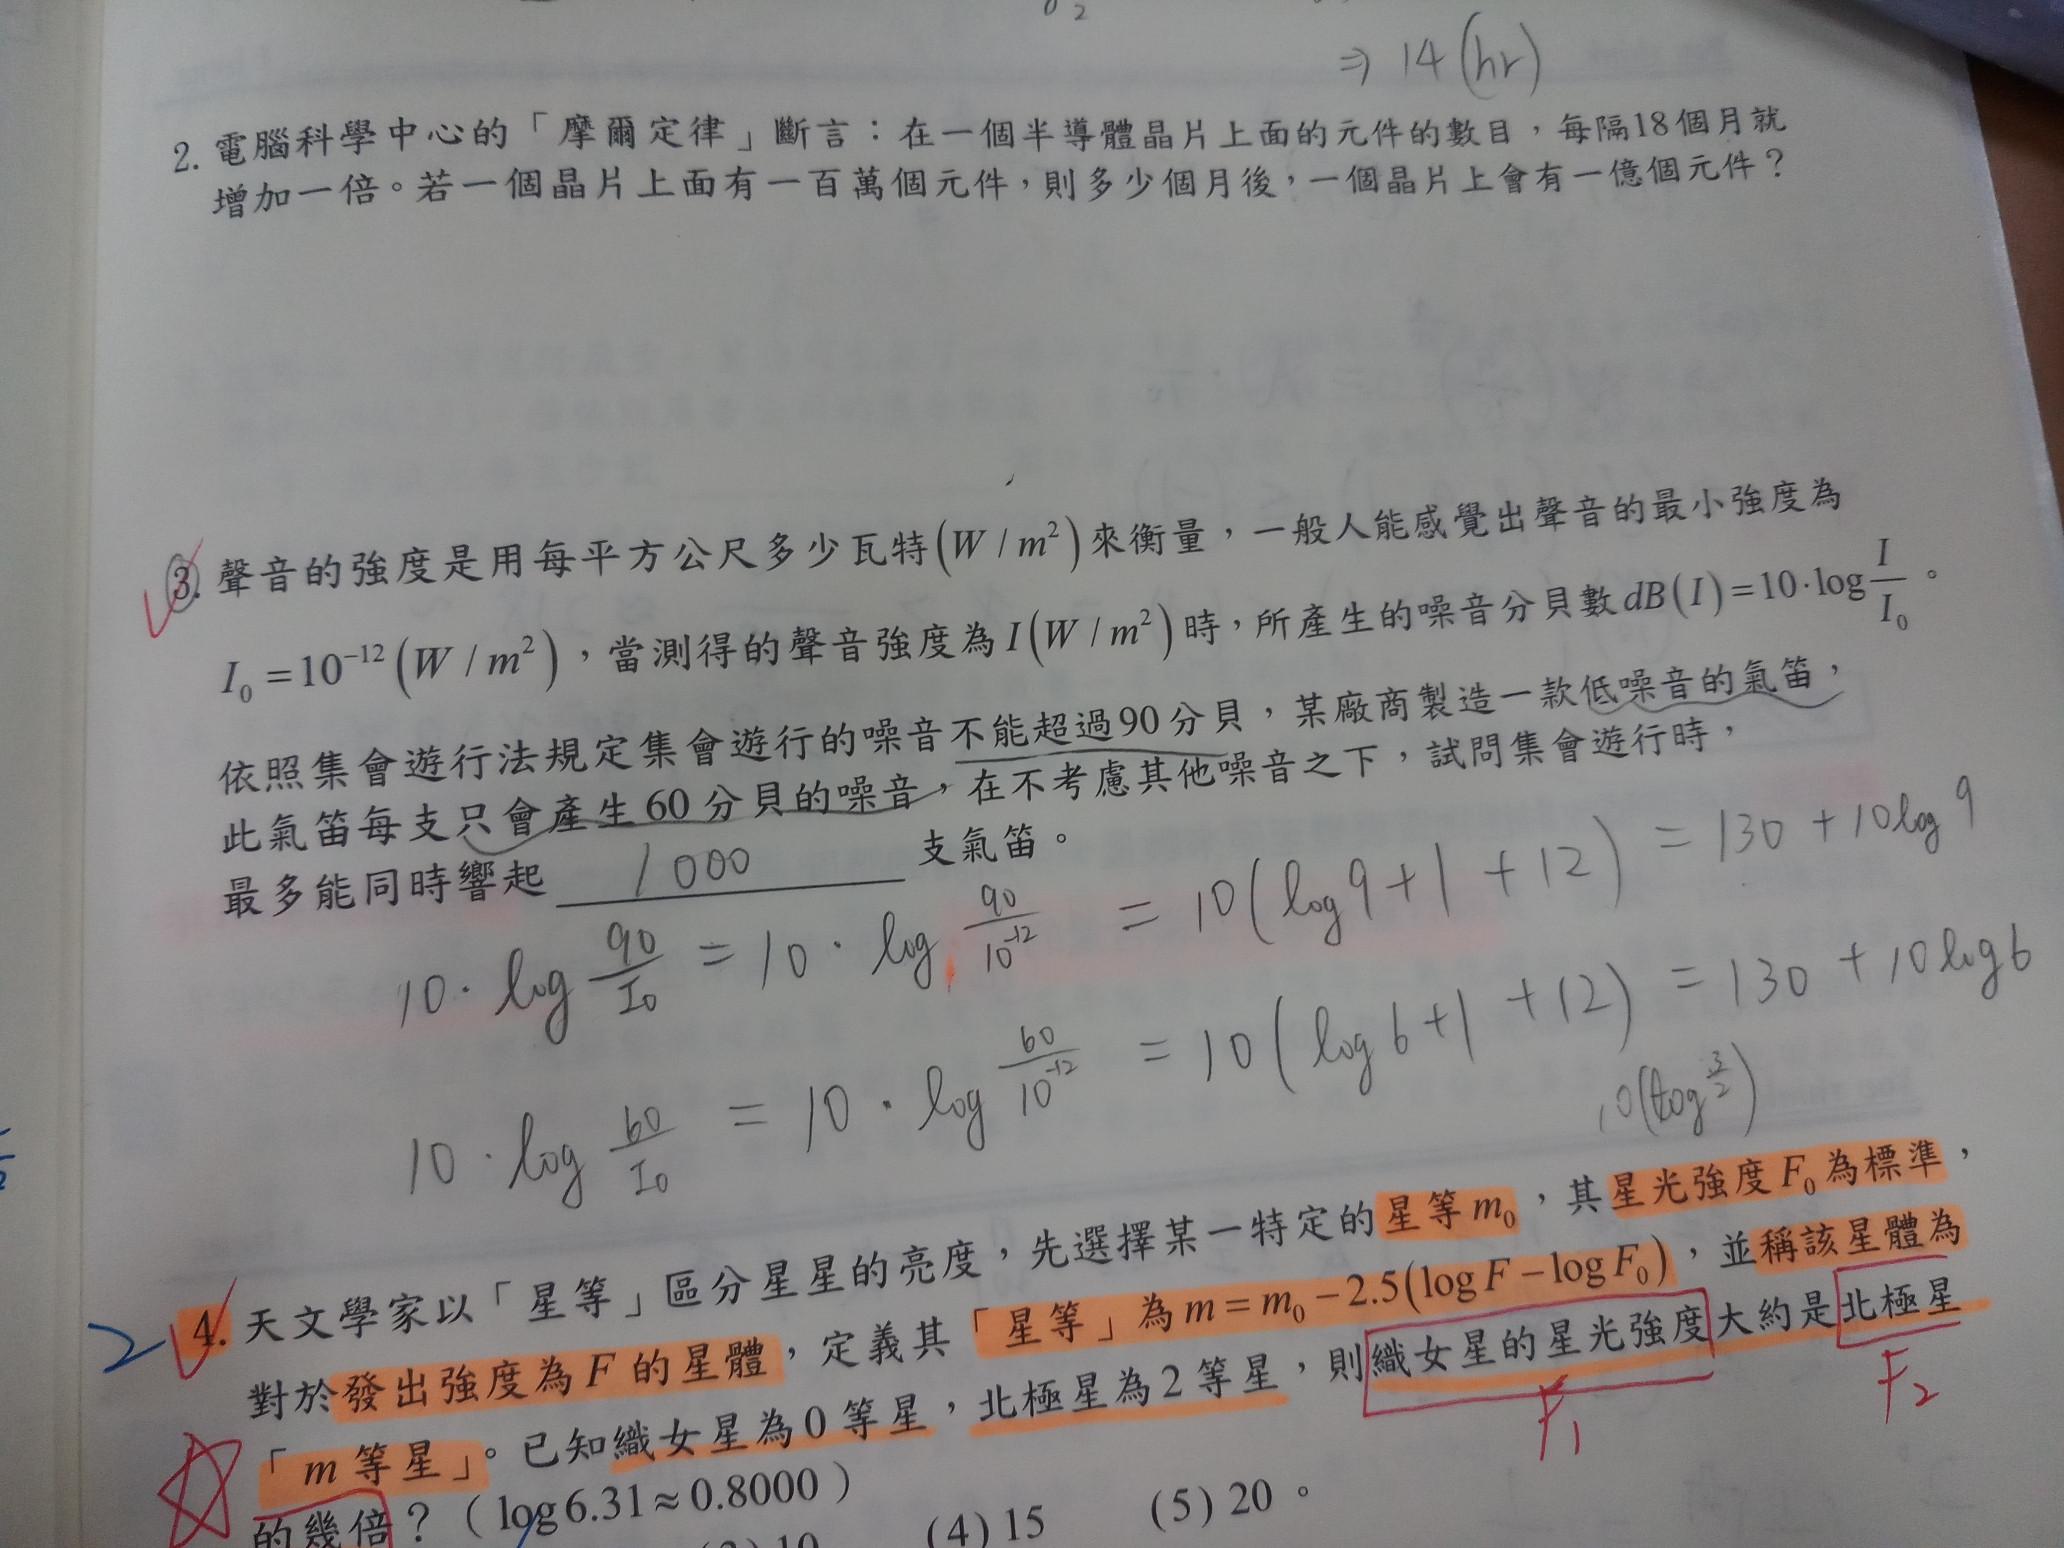 ⇒ 14 (hr)
2. 電腦科學中心的「摩爾定律」斷言：在一個半導體晶片上面的元件的數目，每隔18個月就
增加一倍。若一個晶片上面有一百萬個元件，則多少個月後，一個晶片上會有一億個元件？
3. 聲音的強度是用每平方公尺多少瓦特(W / m²)來衡量，一般人能感覺出聲音的最小強度為
I₀ = 10⁻¹² (W / m²)，當測得的聲音強度為 I (W / m²) 時，所產生的噪音分貝數 dB(I) = 10·log I/I₀。
依照集會遊行法規定集會遊行的噪音不能超過90分貝，某廠商製造一款低噪音的氣笛，
此氣笛每支只會產生60分貝的噪音，在不考慮其他噪音之下，試問集會遊行時，
最多能同時響起 1000 支氣笛。
10 · log 90/I₀ = 10 · log 90/10⁻¹² = 10(log 9 + 1 + 12) = 130 + 10 log 9
10 · log 60/I₀ = 10 · log 60/10⁻¹² = 10(log 6 + 1 + 12) = 130 + 10 log 6
10(log 3/2)
4. 天文學家以「星等」區分星星的亮度，先選擇某一特定的星等 m₀，其星光強度 F₀ 為標準，
對於發出強度為 F 的星體，定義其「星等」為 m = m₀ − 2.5(log F − log F₀)，並稱該星體為
「m 等星」。已知織女星為 0 等星，北極星為 2 等星，則織女星的星光強度大約是北極星
F₁ F₂
的幾倍？（log 6.31 ≈ 0.8000）
(4) 15 (5) 20。